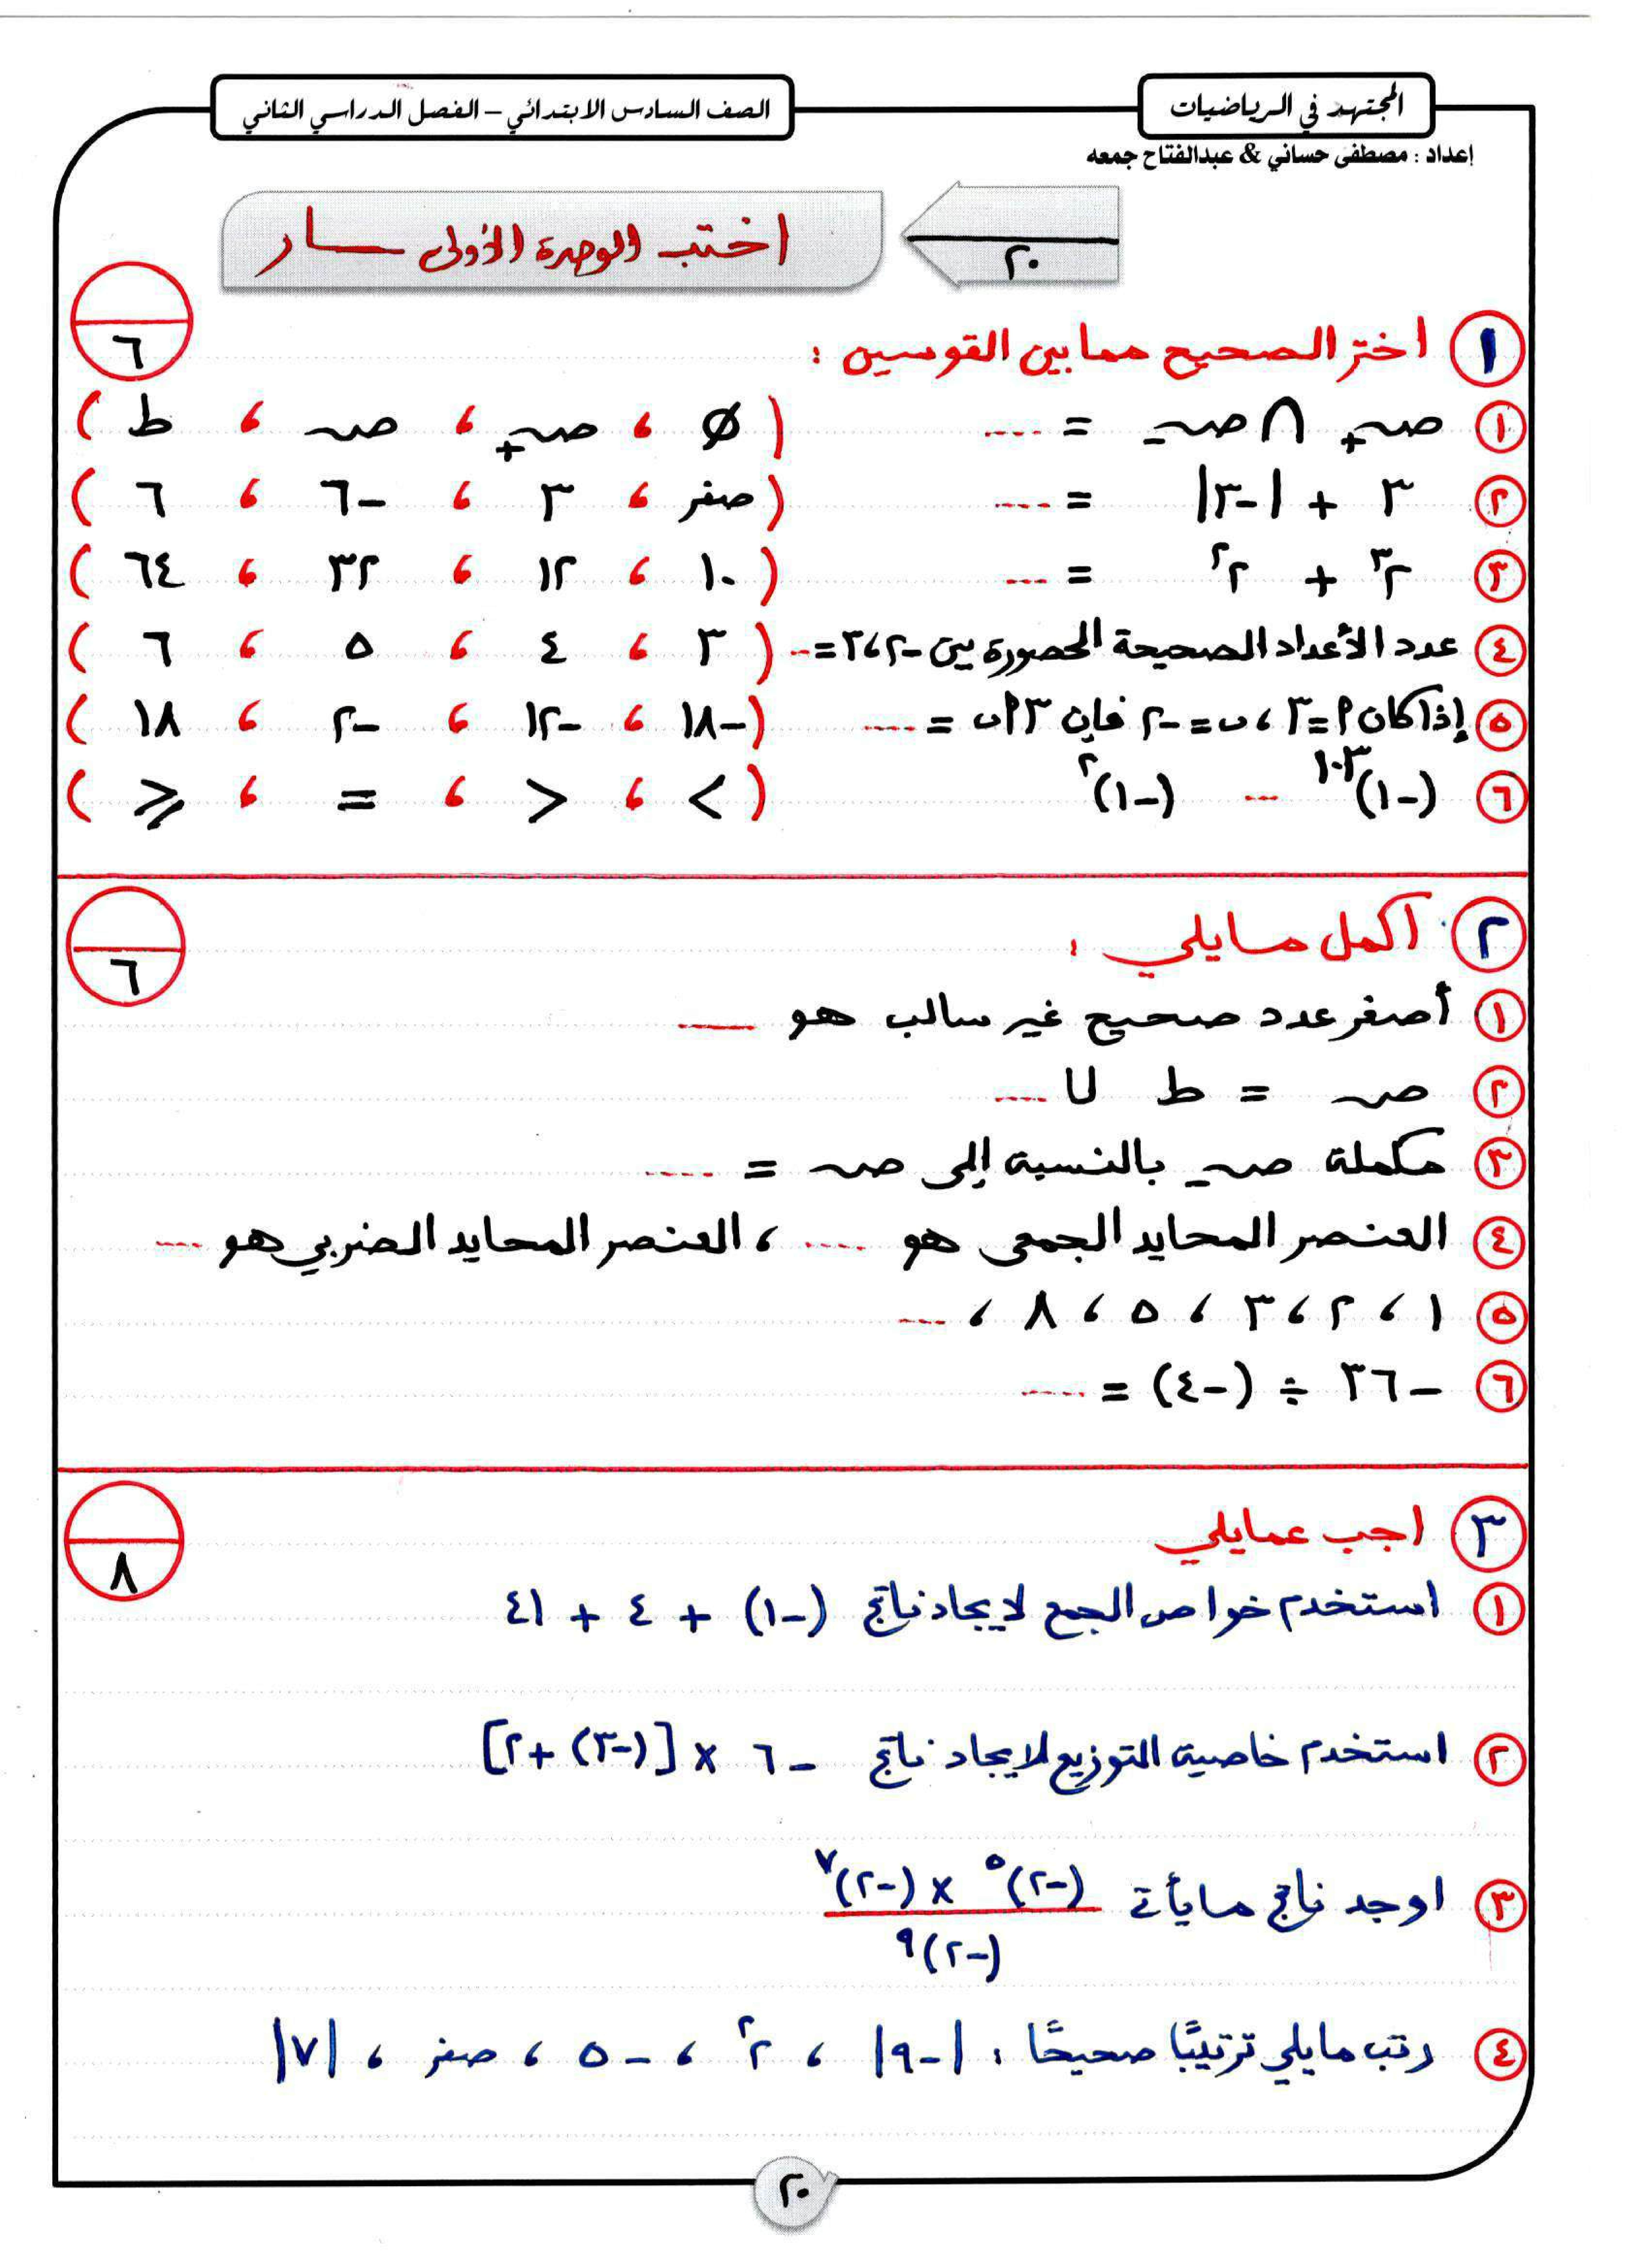 المجتهد في الرياضيات
الصف السادس الابتدائي – الفصل الدراسي الثاني
إعداد : مصطفى حساني & عبدالفتاح جمعه
٢٠
اختبـ الوحدة الأولى ـار
١ اختر الصحيح مما بين القوسين :
٦
١ صـ+ ∩ صـ- = ---- ( Ø ، صـ+ ، صـ ، ط )
٢ ٣ + |-٣| = ---- ( صفر ، ٣ ، -٦ ، ٦ )
٣ ٢³ + ٢² = --- ( ١٠ ، ١٢ ، ٣٢ ، ٦٤ )
٤ عدد الأعداد الصحيحة المحصورة بين -٢ ، ٣ = -- ( ٣ ، ٤ ، ٥ ، ٦ )
٥ إذا كان ٢ = ٣ ، ب = -٢ فإن ٣ أ ب = ---- ( -١٨ ، -١٢ ، -٢ ، ١٨ )
٦ (-١)^١٠٣ --- (-١)^٢ ( > ، < ، = ، ≥ )
٢ أكمل مايلي :
٦
١ أصغر عدد صحيح غير سالب هو ___
٢ صـ = ط U ----
٣ مكملة صـ- بالنسبة إلى صـ = ----
٤ العنصر المحايد الجمعى هو ---- ، العنصر المحايد الضربي هو ---
٥ ١ ، ٢ ، ٣ ، ٥ ، ٨ ، ---
٦ -٣٦ ÷ (-٤) = ----
٣ اجب عمايلي
٨
١ استخدم خواص الجمع لايجاد ناتج (-١) + ٤ + ٤١
٢ استخدم خاصية التوزيع لايجاد ناتج -٦ × [(-٣) + ٢]
٣ اوجد ناتج مايأتى (-٢)^٥ × (-٢)^٧
(-٢)^٩
٤ رتب مايلي ترتيبًا صحيحًا : |-٩| ، ٢² ، -٥ ، صفر ، |٧|
٢٠